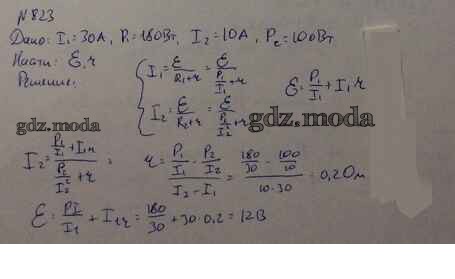 N 823
Дано: I₁ = 30А, P₁ = 180Вт, I₂ = 10А, P₂ = 100Вт
Найти: ℰ, r
Решение:
I₁ = ℰ/(R₁+r) = ℰ/(P₁/I₁²+r)
I₂ = ℰ/(R₂+r) = ℰ/(P₂/I₂²+r)
ℰ = P₁/I₁ + I₁r
gdz.moda
gdz.moda
r = (P₁/I₁ - P₂/I₂)/(I₂ - I₁) = (180/30 - 100/10)/(10-30) = 0,2Ом
ℰ = PI/I₁ + I₁r = 180/30 + 30·0,2 = 12В